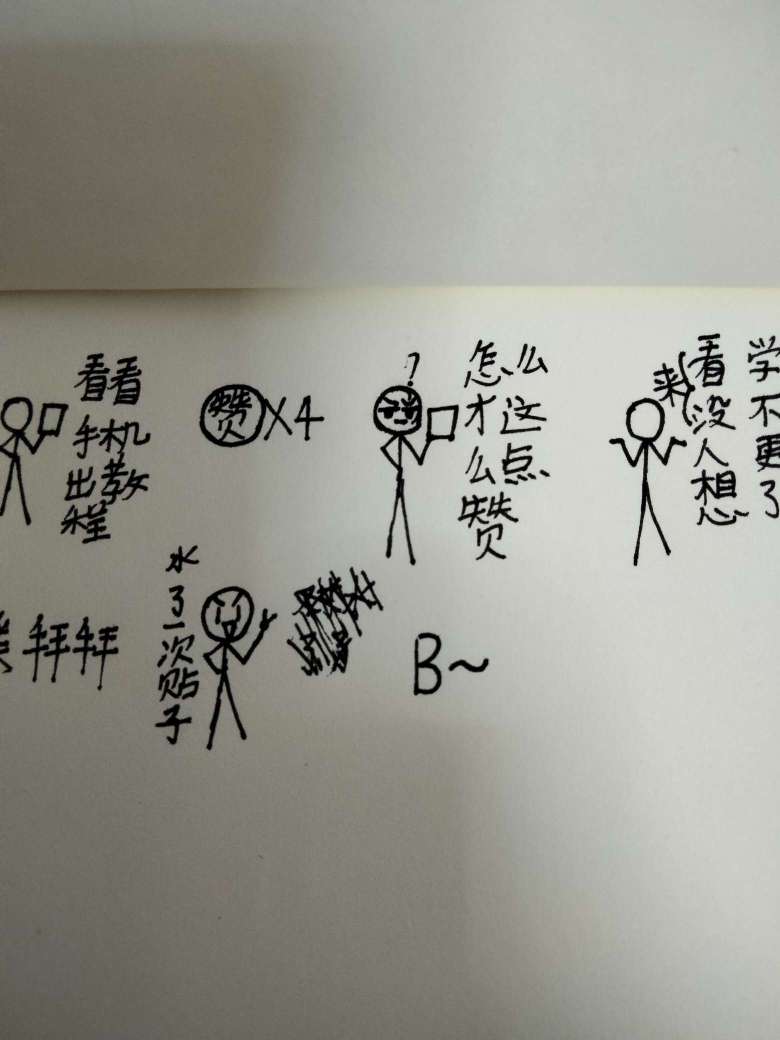 看看
手机
出教
程
赞X4
?
怎么
才这
么点
赞
看没人想
来
学不更了
拜拜
水了一次贴子
B~